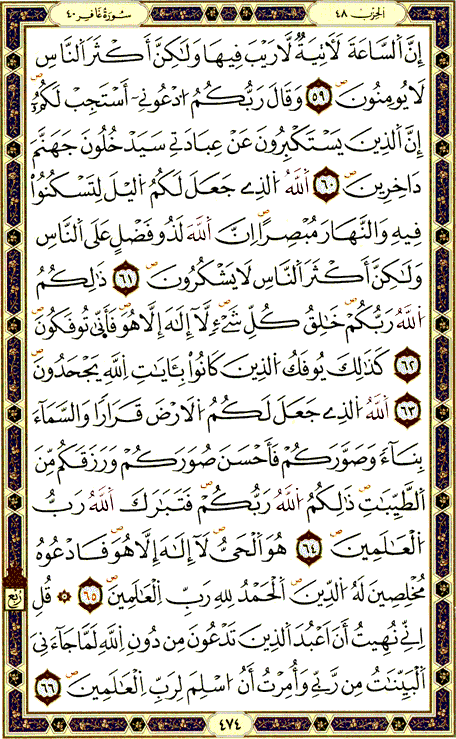 سُورَةُ غَافِر ٤٠
الحِزْبُ ٤٨
إِنَّ اَ۬لسَّاعَةَ لَأٓتِيَةٞ لَّا رَيْبَ فِيهَا وَلَٰكِنَّ أَكْثَرَ اَ۬لنَّاسِ
لَا يُومِنُونَۖ ٥٩ وَقَالَ رَبُّكُمُ اُ۟دْعُونِيٓ أَسْتَجِبْ لَكُمُۥٓۖ
إِنَّ اَ۬لذِينَ يَسْتَكْبِرُونَ عَنْ عِبَادَتِي سَيَدْخُلُونَ جَهَنَّمَ
دَاخِرِينَۖ ٦٠ اَ۬للَّهُ اُ۬لذِي جَعَلَ لَكُمُ اُ۬ليْلَ لِتَسْكُنُواْ
فِيهِ وَالنَّهَارَ مُبْصِراًۖ اِنَّ اَ۬للَّهَ لَذُو فَضْلٍ عَلَى اَ۬لنَّاسِ
وَلَٰكِنَّ أَكْثَرَ اَ۬لنَّاسِ لَا يَشْكُرُونَۖ ٦١ ذَٰلِكُمُ
اُ۬للَّهُ رَبُّكُمْ خَٰلِقُ كُلِّ شَيْءٖ لَّآ إِلَٰهَ إِلَّا هُوَۖ فَأَنّ۪يٰ تُوفَكُونَۖ
٦٢ كَذَٰلِكَ يُوفَكُ اُ۬لذِينَ كَانُواْ بِـَٔايَٰتِ اِ۬للَّهِ يَجْحَدُونَۖ
٦٣ اَ۬للَّهُ اُ۬لذِي جَعَلَ لَكُمُ اُ۬لَارْضَ قَرَاراٗ وَالسَّمَآءَ
بِنَآءٗ وَصَوَّرَكُمْ فَأَحْسَنَ صُوَرَكُمْ وَرَزَقَكُم مِّنَ
اَ۬لطَّيِّبَٰتِۖ ذَٰلِكُمُ اُ۬للَّهُ رَبُّكُمْۖ فَتَبَٰرَكَ اَ۬للَّهُ رَبُّ
اُ۬لْعَٰلَمِينَۖ ٦٤ هُوَ اَ۬لْحَيُّ لَآ إِلَٰهَ إِلَّا هُوَۖ فَادْعُوهُ
مُخْلِصِينَ لَهُ اُ۬لدِّينَۖ اَ۬لْحَمْدُ لِلهِ رَبِّ اِ۬لْعَٰلَمِينَۖ ٦٥ ۞ قُلِ
اِنِّي نُهِيتُ أَنَ اَعْبُدَ اَ۬لذِينَ تَدْعُونَ مِن دُونِ اِ۬للَّهِ لَمَّا جَآءَنِيَ
اَ۬لْبَيِّنَٰتُ مِن رَّبِّي وَأُمِرْتُ أَنُ اُسْلِمَ لِرَبِّ اِ۬لْعَٰلَمِينَۖ ٦٦
ربع
٤٧٤